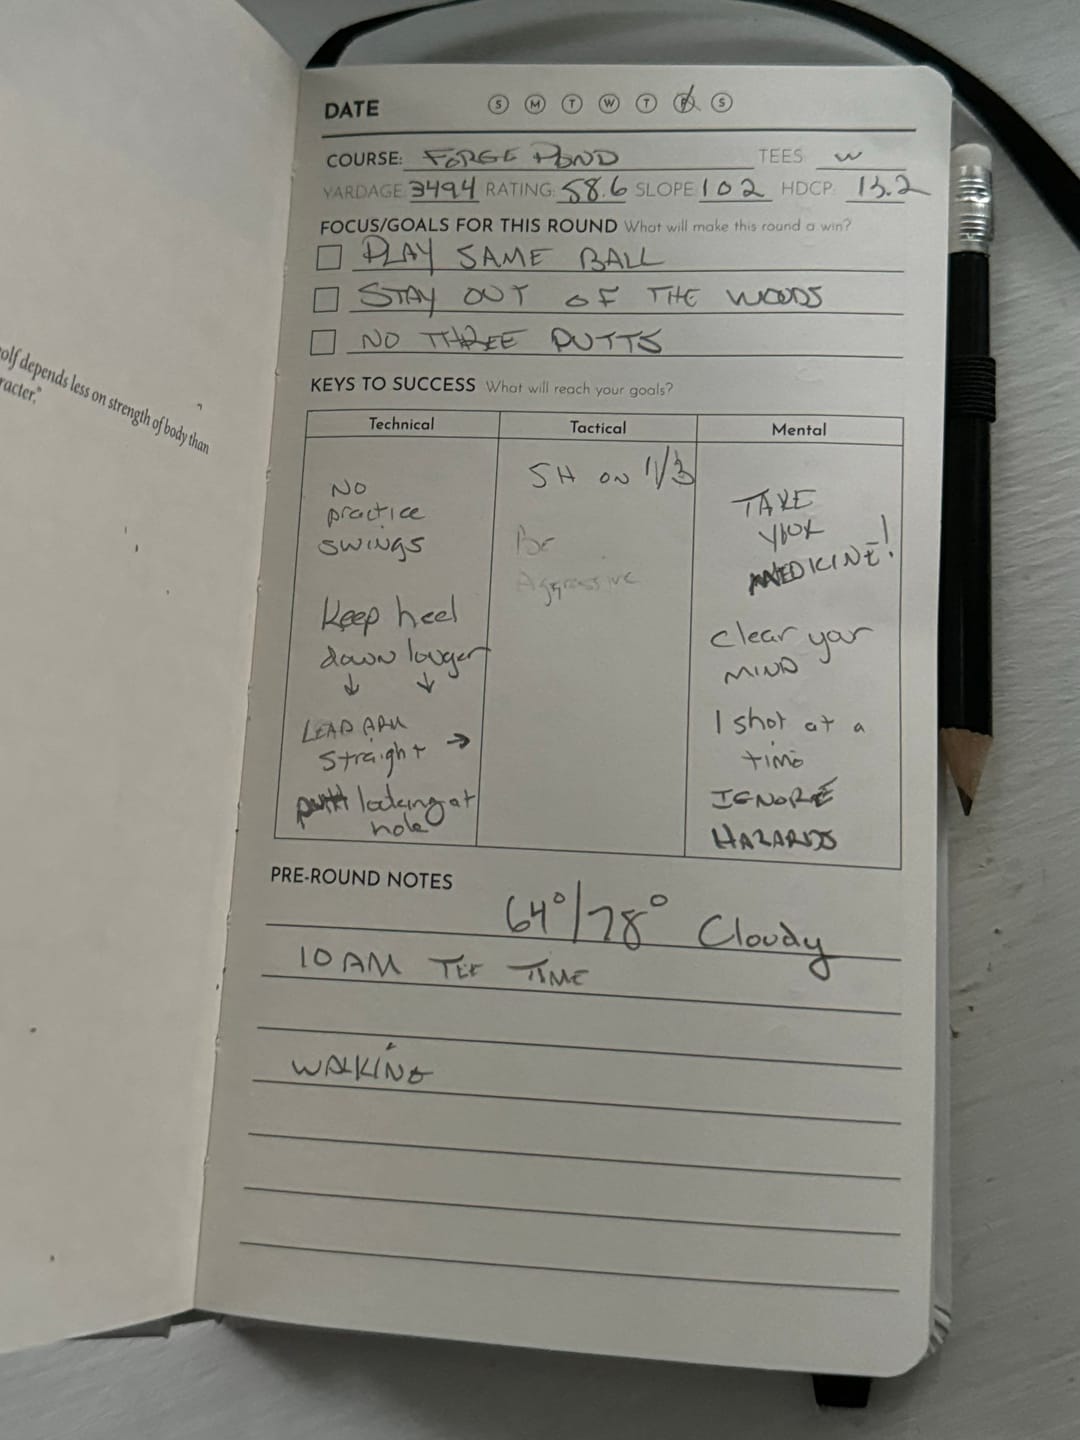 olf depends less on strength of body than
racter."
DATE S M T W T F S
COURSE: FORGE POND TEES W
YARDAGE: 3494 RATING: 58.6 SLOPE: 102 HDCP: 13.2
FOCUS/GOALS FOR THIS ROUND What will make this round a win?
PLAY SAME BALL
STAY OUT OF THE WOODS
NO THREE PUTTS
KEYS TO SUCCESS What will reach your goals?
Technical
NO
practice
SWINGS
Keep heel
down longer
↓ ↓
LEAD ARM
straight →
putt looking at
hole
Tactical
5H ON 1/3
Be
Aggressive
Mental
TAKE
YOUR
MEDICINE!
clear your
MIND
1 shot at a
time
IGNORE
HAZARDS
PRE-ROUND NOTES
64°/78° Cloudy
10 AM TEE TIME
WALKING